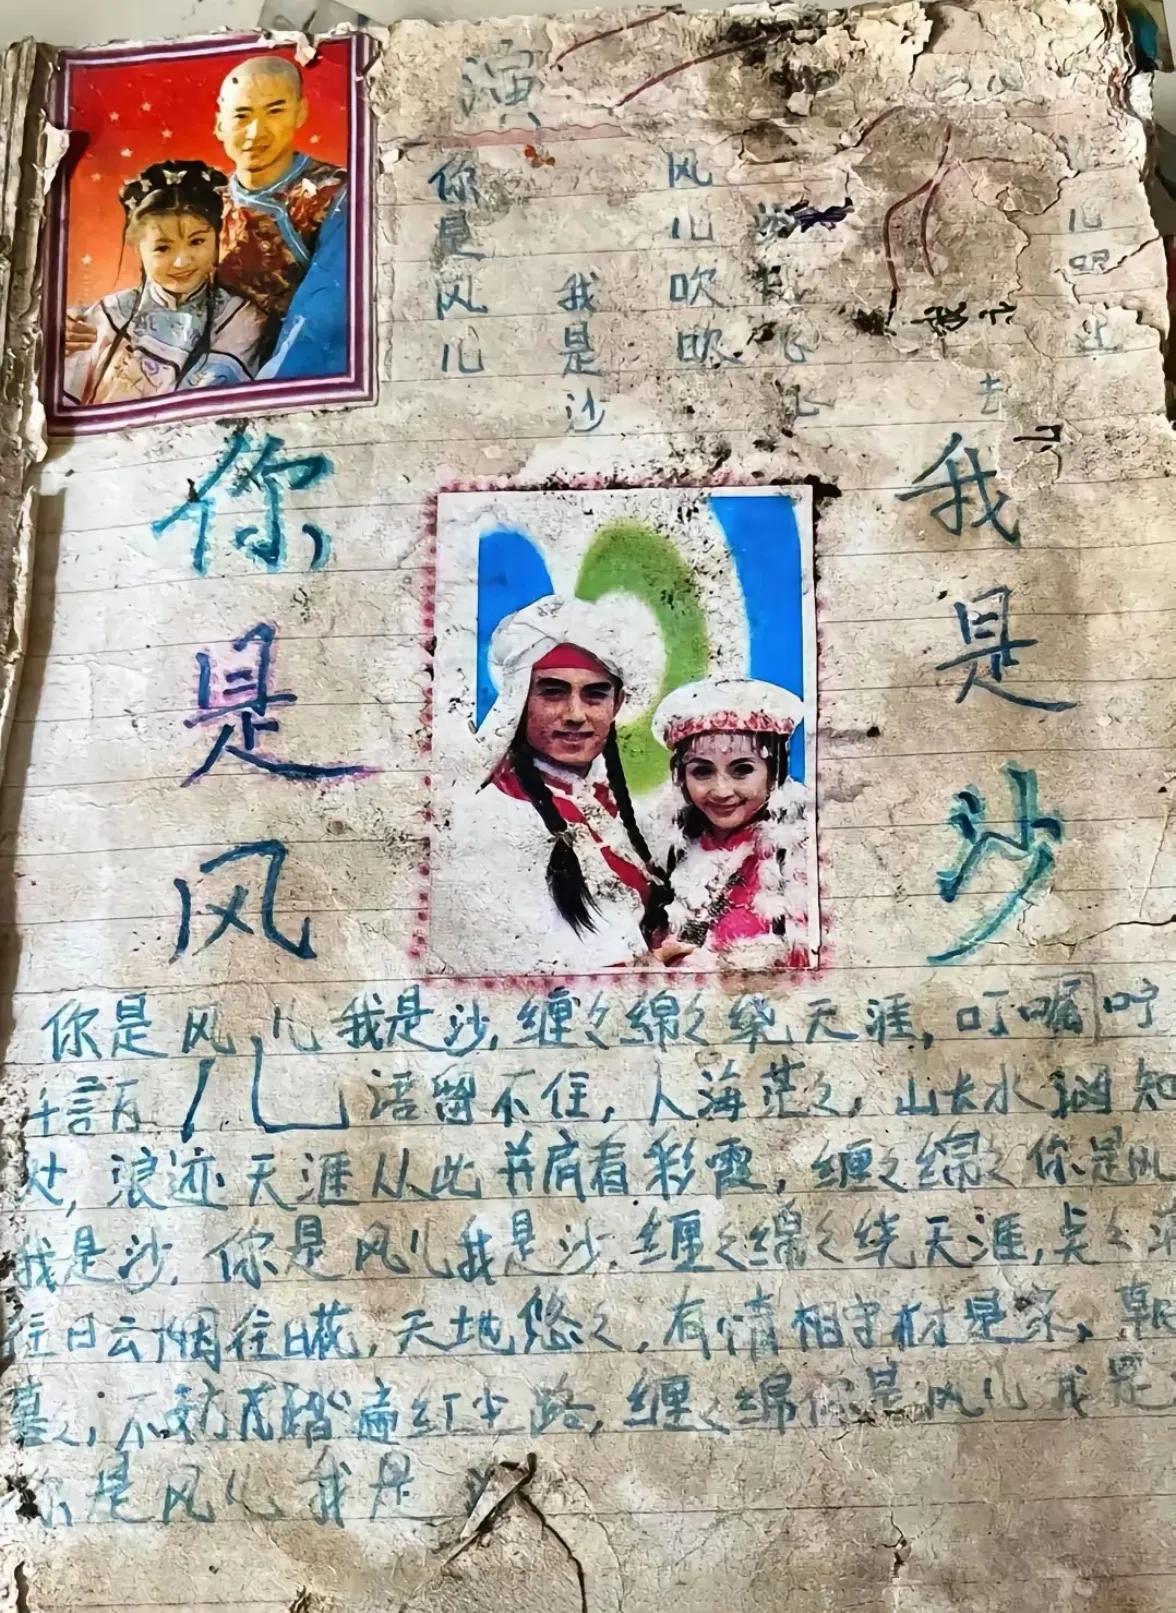 演
你是风儿
我是沙
风儿吹吹
飞飞
去
你是风儿
我是沙
你是风儿我是沙,缠々绵々绕天涯,叮嘱咛
千言万语留不住,人海茫々,山长水阔知
处,浪迹天涯从此并肩看彩霞,缠々绵々你是风
我是沙,你是风儿我是沙,缠々绵々绕天涯,点々滴
往日云烟往日花,天地悠々,有情相守才是家,朝
暮々,不妨踏遍红尘路,缠々绵你是风儿我是
你是风儿我是